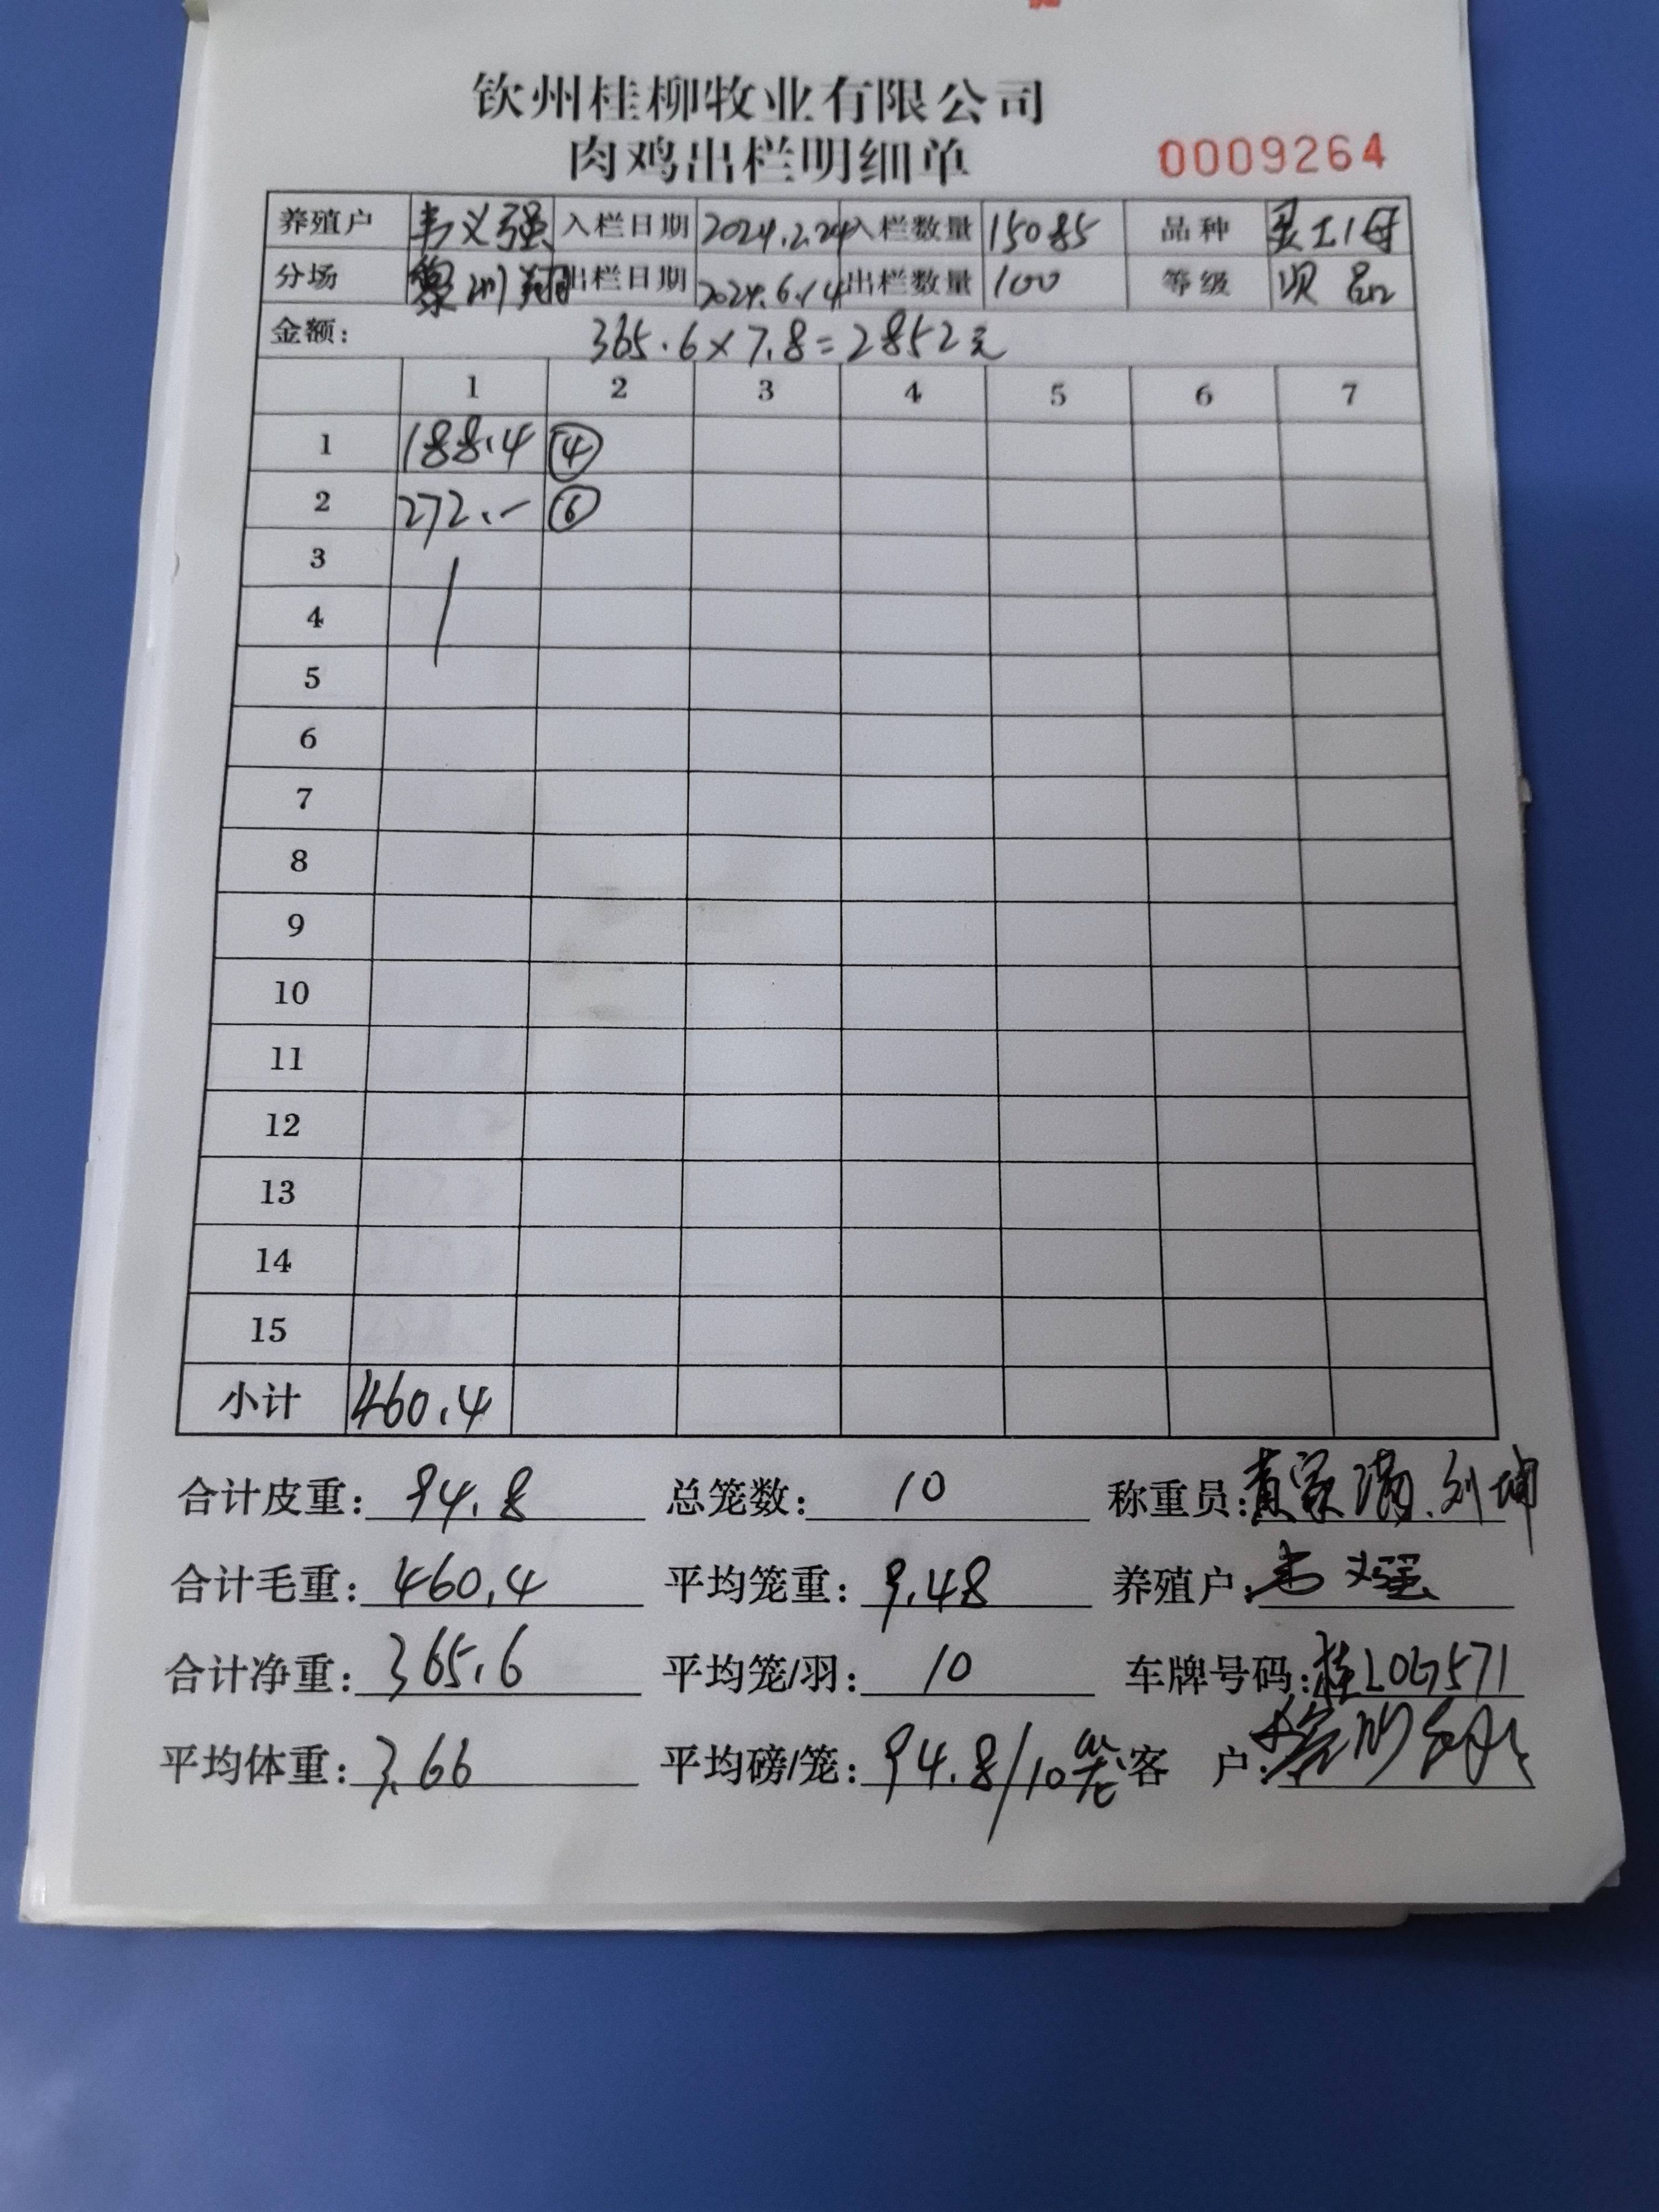 钦州桂柳牧业有限公司
肉鸡出栏明细单 0009264
养殖户 韦义强 入栏日期 2024.2.24 入栏数量 15085 品种 灵土1母
分场 出栏日期 2024.6.14 出栏数量 100 等级 次品
金额: 365.6×7.8=2852元
1 2 3 4 5 6 7
1 188.4 ④
2 272.- ⑥
3
4
5
6
7
8
9
10
11
12
13
14
15
小计 460.4
合计皮重: 94.8 总笼数: 10 称重员: 黄家满.刘坤
合计毛重: 460.4 平均笼重: 9.48 养殖户: 韦义强
合计净重: 365.6 平均笼/羽: 10 车牌号码: 桂L0G571
平均体重: 3.66 平均磅/笼: 94.8/10笼 客 户: